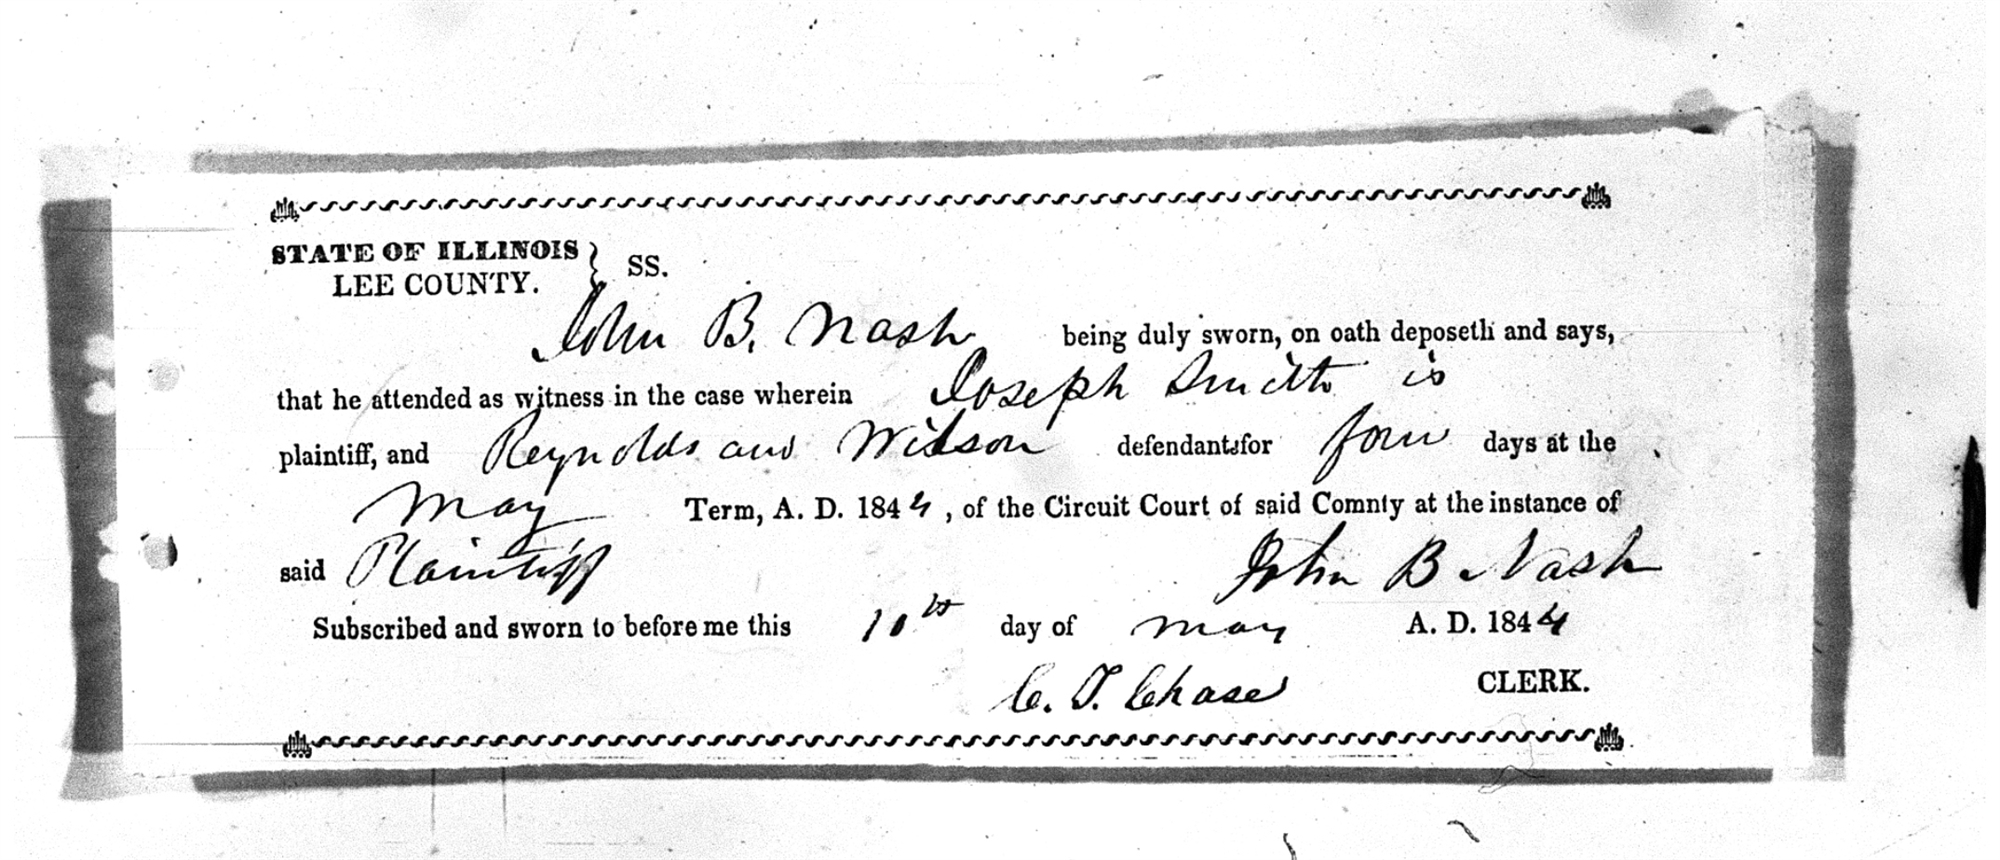 STATE OF ILLINOIS } SS.
LEE COUNTY.
John B. Nash being duly sworn, on oath deposeth and says,
that he attended as witness in the case wherein Joseph Smith is
plaintiff, and Reynolds and Wilson defendants for four days at the
May Term, A. D. 1844, of the Circuit Court of said Comnty at the instance of
said Plaintiff John B Nash
Subscribed and sworn to before me this 10th day of May A. D. 1844
C. T. Chase CLERK.